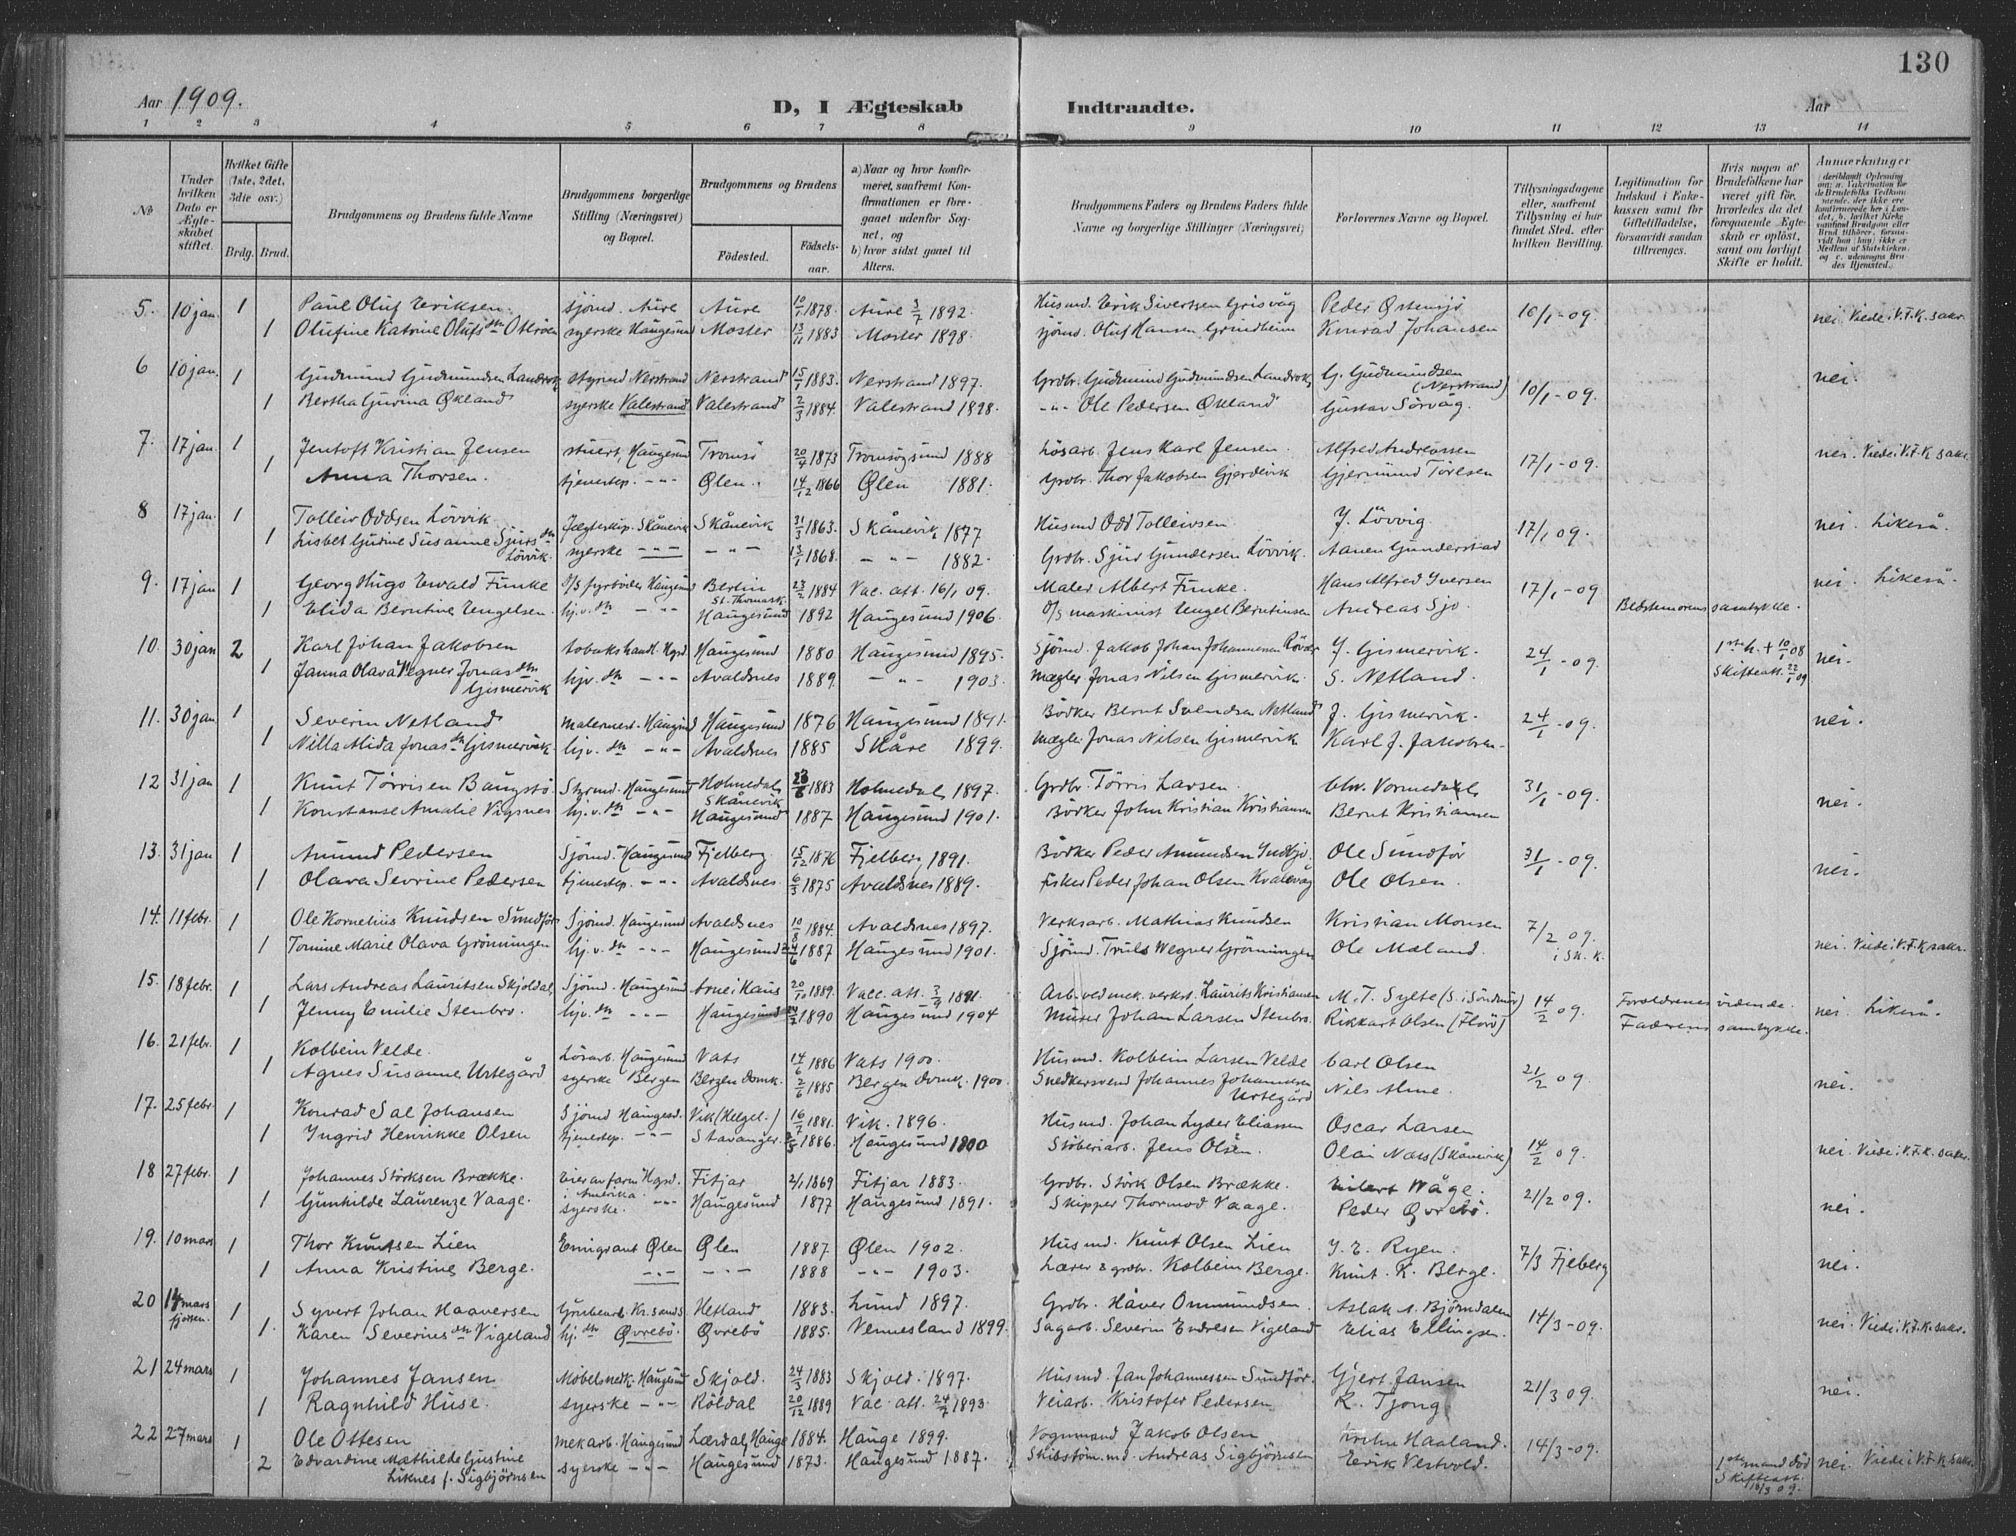 130
Aar 1909.
D, I Ægteskab Indtraadte.
Aar
1 2 3 4 5 6 7 8 9 10 11 12 13 14
No
Under hvilken Dato er Ægteskabet stiftet.
Hvilket Gifte (1ste, 2det, 3die osv.)
Brdg. Brud.
Brudgommens og Brudens fulde Navne
Brudgommens borgerlige Stilling (Næringsvei) og Bopæl.
Brudgommens og Brudens
Fødested. Fødselsaar.
a) Naar og hvor konfirmeret, saafremt Konfirmationen er foregaaet udenfor Sognet, og
b) hvor sidst gaaet til Alters.
Brudgommens Faders og Brudens Faders fulde Navne og borgerlige Stillinger (Næringsvei)
Forlovernes Navne og Bopæl.
Tillysningsdagene eller, saafremt Tillysning ei har fundet Sted, efter hvilken Bevilling.
Legitimation for Indskud i Enkekassen samt for Giftetilladelse, forsaavidt saadan tiltrænges.
Hvis nogen af Brudefolkene har været gift før, hvorledes da det foregaaende Ægteskab er opløst, samt om lovligt Skifte er holdt.
Anmerkninger
5. 10 jan. 1 Paul Oluf Eriksen. sjömd. Aure Aure 10/1 1878. Aure 3/7 1892. Husmd. Erik Sivertsen Grisvåg Peder Østensjö 10/1-09. nei. Viede i V.F.K. sakr.
1 Olufine Katrine Olufsdtr Otterøen syerske Haugesund Moster 13/11 1883 Moster 1898. sjömd. Oluf Hansen Grindheim Konrad Johansen
6 10 jan. 1 Gudmund Gudmundsen Landvik styrmd Nerstrand Nerstrand 15/1 1883. Nerstrand 1897. Grdbr. Gudmund Gudmundsen Landvik G. Gudmundsen (Nerstrand) 10/1-09. nei.
1 Bertha Gurina Økland syerske Valestrand Valestrand 2/3 1884. Valestrand 1898. -"- Ole Pedersen Økland Gustav Sörvåg.
7. 17 jan. 1 Jentoft Kristian Jensen stuert, Haugesund Tromsö 20/4 1873 Tromsösund 1888 Lösarb. Jens Karl Jensen. Alfred Andreassen 17/1-09. nei. Viede i V.F.K. sakr.
1 Anna Thorsen. tjenestep. -"- Ølen. 14/12 1866 Ølen 1881. Grdbr. Thor Jakobsen Gjerdevik Gjermund Töresen
8 17 jan. 1 Tolleiv Oddsen Lövvik Jægteskip. Skånevik Skånevik 31/3 1863. Skånevik 1877 Husmd Odd Tolleivsen. J. Lövvig 17/1 09. nei. Likeså.
1 Lisbet Gurine Susanne Sjursdtr Lövvik. syerske -"- -"- 13/1 1868. -"- 1882. Grdbr. Sjur Gundersen Lövvik. Aanen Gunderstad
9. 17 jan 1 Georg Hugo Ewald Funke D/S fyrböder Haugesund Berlin St. Thomask. 23/2 1884 Vac. att. 16/1 09. Maler Albert Funke. Hans Alfred Iversen 17/1-09 nei. Likeså.
1 Elida Berntine Engelsen. hj.v. dtr -"- Haugesund 1892 Haugesund 1906. D/S maskinist Engel Berntinsen Andreas Sjo. Bedstemorens samtykke.
10. 30 jan 2 Karl Johan Jakobsen tobakshandl. Hgsd Haugesund 1880 Haugesund 1895. Sjömd. Jakob Johan Johannesen Rövær J. Gismervik. 24/1-09. 1ste h. + 10/1 08 Skifteatt. 22/1 09 nei.
1 Janna Olava Wegner Jonasdtr Gismervik hjv. dtr -"- Avaldsnes 1889. -"- 1903. Mægler Jonas Nilsen Gismervik. S. Netland.
11. 30 jan. 1 Severin Netland malermest. Haugesund Haugesund 1876 Haugesund 1891. Bödker Bernt Svendsen Netland J. Gismervik. 24/1-09. nei.
1 Nilla Alida Jonasdtr Gismervik. hj.v. dtr -"- Avaldsnes 1885 Skåre 1899. Mægler Jonas Nilsen Gismervik Karl J. Jakobsen.
12 31 jan 1 Knut Törrisen Baugstö Styrmd. Haugesund Holmedal Skånevik 23/6 1883 Holmedal 1897. Grdbr. Törris Larsen. Chr. Vormedal 31/1-09. nei.
1 Konstanse Amalie Vignes hj.v. dtr -"- Haugesund 1887 Haugesund 1901. Bödker John Kristian Kristiansen Bernt Kristiansen
13. 31 jan 1 Amund Pedersen Sjömd. Haugesund Fjelberg 15/12 1876 Fjelberg 1891. Bödker Peder Amundsen Indbjo. Ole Sundför 31/1-09. nei.
1 Olava Sevrine Pedersen tjenestep. -"- Avaldsnes. 6/3 1875 Avaldsnes 1889. Fisker Peder Johan Olsen Kvalevåg Ole Olsen.
14. 11 febr. 1 Ole Kornelius Knudsen Sundför Sjömd. Haugesund Avaldsnes 10/8 1884. Avaldsnes 1897. Verksarb. Mathias Knudsen Kristian Monsen 7/2 09. i Sk. K. nei. Viede i V.F.K. sakr.
1 Tomine Marie Olava Grönningen hj.v. dtr -"- Haugesund 1887 Haugesund 1901. Sjömd. Truls Wegner Grönningen Ole Mæland.
15. 18 febr. 1 Lars Andreas Lauritsen Skjoldal Sjömd. Haugesund Arne i Haus 20/10 1889. Vacc. att. Arb. ved mek. verkst. Laurits Kristiansen M. T. Sylte (S. i Söndmör) 14/2 09. Forældrenes vidende. nei. Likeså.
1 Jenny Emilie Stenbro. hjv. dtr -"- Haugesund 1890 Haugesund 1904 Murer Johan Larsen Stenbro. Rikkart Olsen (Florö) Faderens samtykke.
16. 21 febr. 1 Kolbein Velde. Lösarb. Haugesund Vats 14/6 1886 Vats 1900. Husmd. Kolbein Larsen Velde Carl Olsen 21/2 09. nei.
1 Agnes Susanne Urtegård syerske Bergen Bergen domk. 2/6 1885 Bergen domk. 1900. Snedkersvend Johannes Johannesen Urtegård Nils Alme.
17. 25 febr. 1 Konrad Sal Johansen Sjömd Haugesd. Vik (Helgel.) 16/7 1881. Vik. 1896. Husmd. Johan Lyder Eliassen Oscar Larsen 14/2 09. nei. Viede i V.F.K. sakr.
1 Ingrid Henrikke Olsen tjenestep. -"- Stavanger. 1886. Haugesund 1900 Stöberiarb. Jens Olsen. Olai Næss (Skånevik)
18 27 febr. 1 Johannes Störksen Brække. Eier av farm Hgsd. i Amerika. Fitjar 2/1 1869 Fitjar 1883. Grdbr. Störk Olsen Brække. Eilert Våge. 21/2 09. nei.
1 Gunhilde Laurenze Vaage. syerske. -"- Haugesund 1877 Haugesund 1891. Skipper Thormod Vaage. Peder Øvrebö.
19. 10 mars 1 Thor Knutsen Lien Emigrant Ølen Ølen 1887. Ølen 1902. Husmd. Knut Olsen Lien J. E. Ryen. 7/3 Fjelberg nei.
1 Anna Kristine Berge. -"- -"- 1888 -"- 1903. Lærer & grdbr. Kolbein Berge. Knut K. Berge.
20 14 mars fjorten. 1 Syvert Johan Haaversen Grubearb. Kr.sands Hetland 1883. Lund 1897. Grdbr. Håver Ommundsen. Aslak A. Björndalen 14/3-09. nei. Viede i V.F.K. sakr.
1. Karen Severinsdtr Vigeland hj. dtr Øvrebö. Øvrebö 1885. Vennesland 1899. Sagarb. Severin Endresen Vigeland Elias Ellingsen.
21 24 mars 1 Johannes Jansen Möbelsnedk. Haugesund Skjold. 24/3 1883 Skjold. 1897. Husmd. Jan Johannessen Sundför. Gjert Jansen 21/3 09. nei.
1 Ragnhild Huse. syerske -"- Röldal 20/12 1889 Vac. att. 24/7 1893. Veiarb. Kristofer Pedersen R. Tjong
22 27 mars 1 Ole Ottesen mekarb. Haugesund Lærdal, Hauge 1884. Hauge 1899. Vognmand Jakob Olsen Haaland. 14/3-09. nei. Viede i V.F.K. sakr.
2 Edvardine Mathilde Gustine Liknes f. Sigbjörnsen syerske -"- Haugesund 1873. Haugesund 1887. Skibstömmd. Andreas Sigbjörnsen Eirik Vestvold. 1ste mand död Skifteatt. 16/3 09.